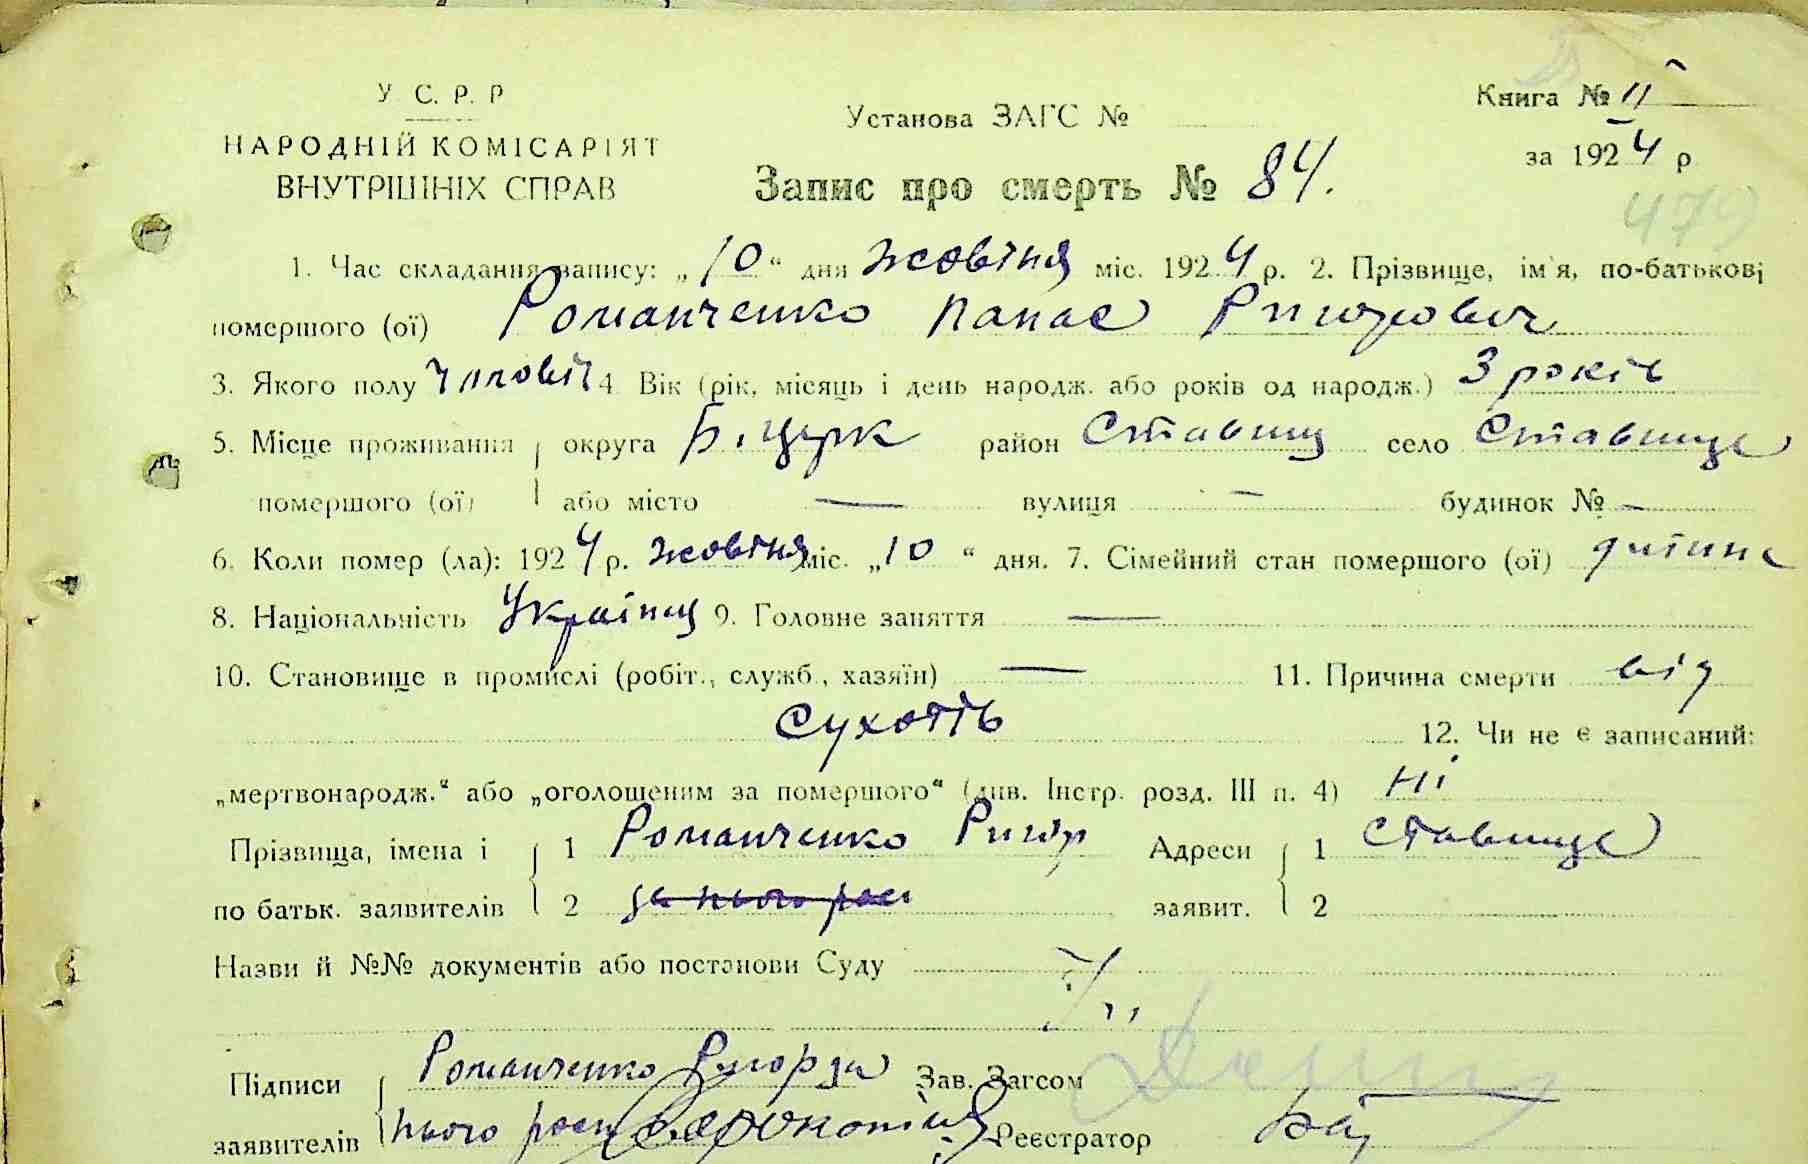 У С. Р. Р
НАРОДНІЙ КОМІСАРІЯТ
ВНУТРІШНІХ СПРАВ
Установа ЗАГС №
Книга № II
за 1924 р
Запис про смерть № 84.
479
1. Час складання запису: „10“ дня жовтня міс. 1924 р. 2. Прізвище, ім'я, по-батькові
помершого (ої) Романченко Панас Ригорович
3. Якого полу чоловіч 4. Вік (рік, місяць і день народж. або років од народж.) 3 років
5. Місце проживання округа Б. Церк район Ставищ село Ставище
помершого (ої) або місто — вулиця — будинок № —
6. Коли помер (ла): 1924 р. жовтня міс. „10“ дня. 7. Сімейний стан помершого (ої) дитина
8. Національність Українц 9. Головне заняття —
10. Становище в промислі (робіт., служб., хазяїн) — 11. Причина смерти від
сухотів 12. Чи не є записаний:
„мертвонародж.“ або „оголошеним за помершого“ (див. Інстр. розд. III п. 4) Ні
Прізвища, імена і 1 Романченко Ригор Адреси 1 Ставище
по батьк. заявителів 2 за нього рос заявит. 2
Назви й №№ документів або постанови Суду
Підписи Романченко Ригор за Зав. Загсом
заявителів нього рос Реєстратор